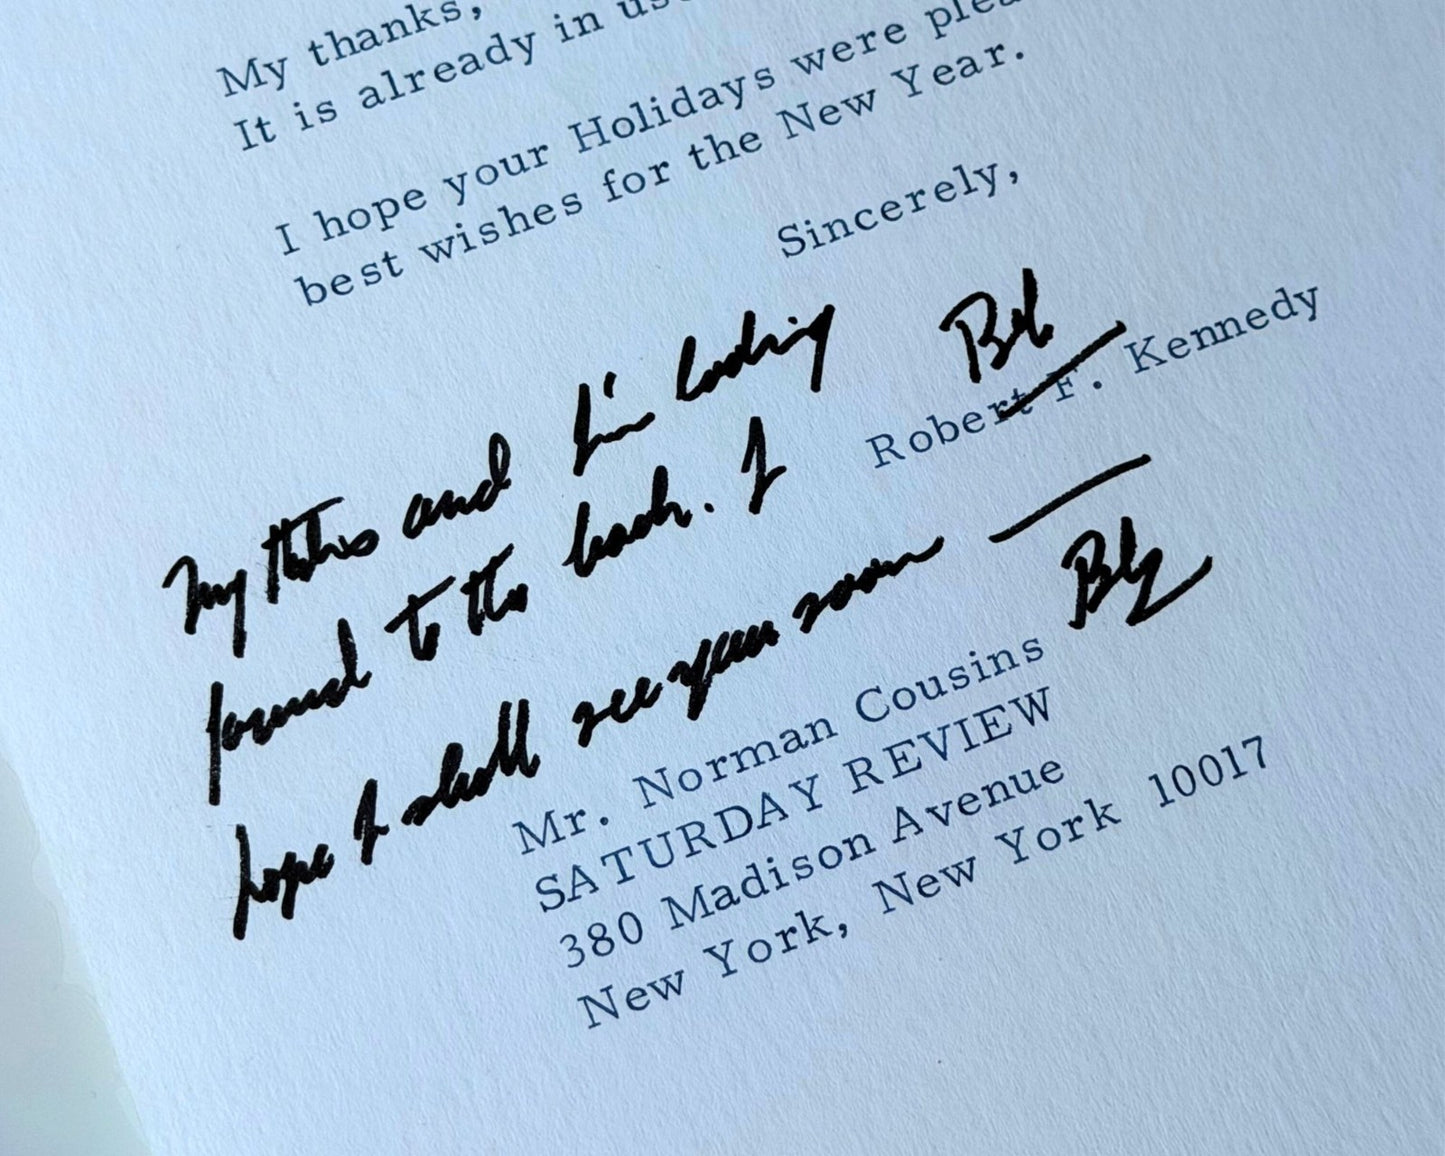 My thanks,
It is already in
I hope your Holidays were
best wishes for the New Year.
Sincerely,
Bob
Robert F. Kennedy
My and I'm looking
forward to the book. I
hope I shall see you soon —
Bob
Mr. Norman Cousins
SATURDAY REVIEW
380 Madison Avenue
New York, New York 10017